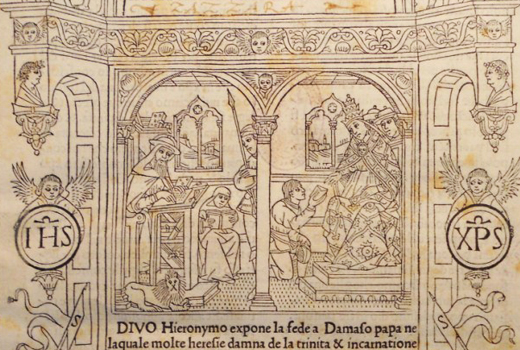 IHS
XPS
DIVO Hieronymo expone la fede a Damaso papa ne
laquale molte heresie damna de la trinita & incarnatione